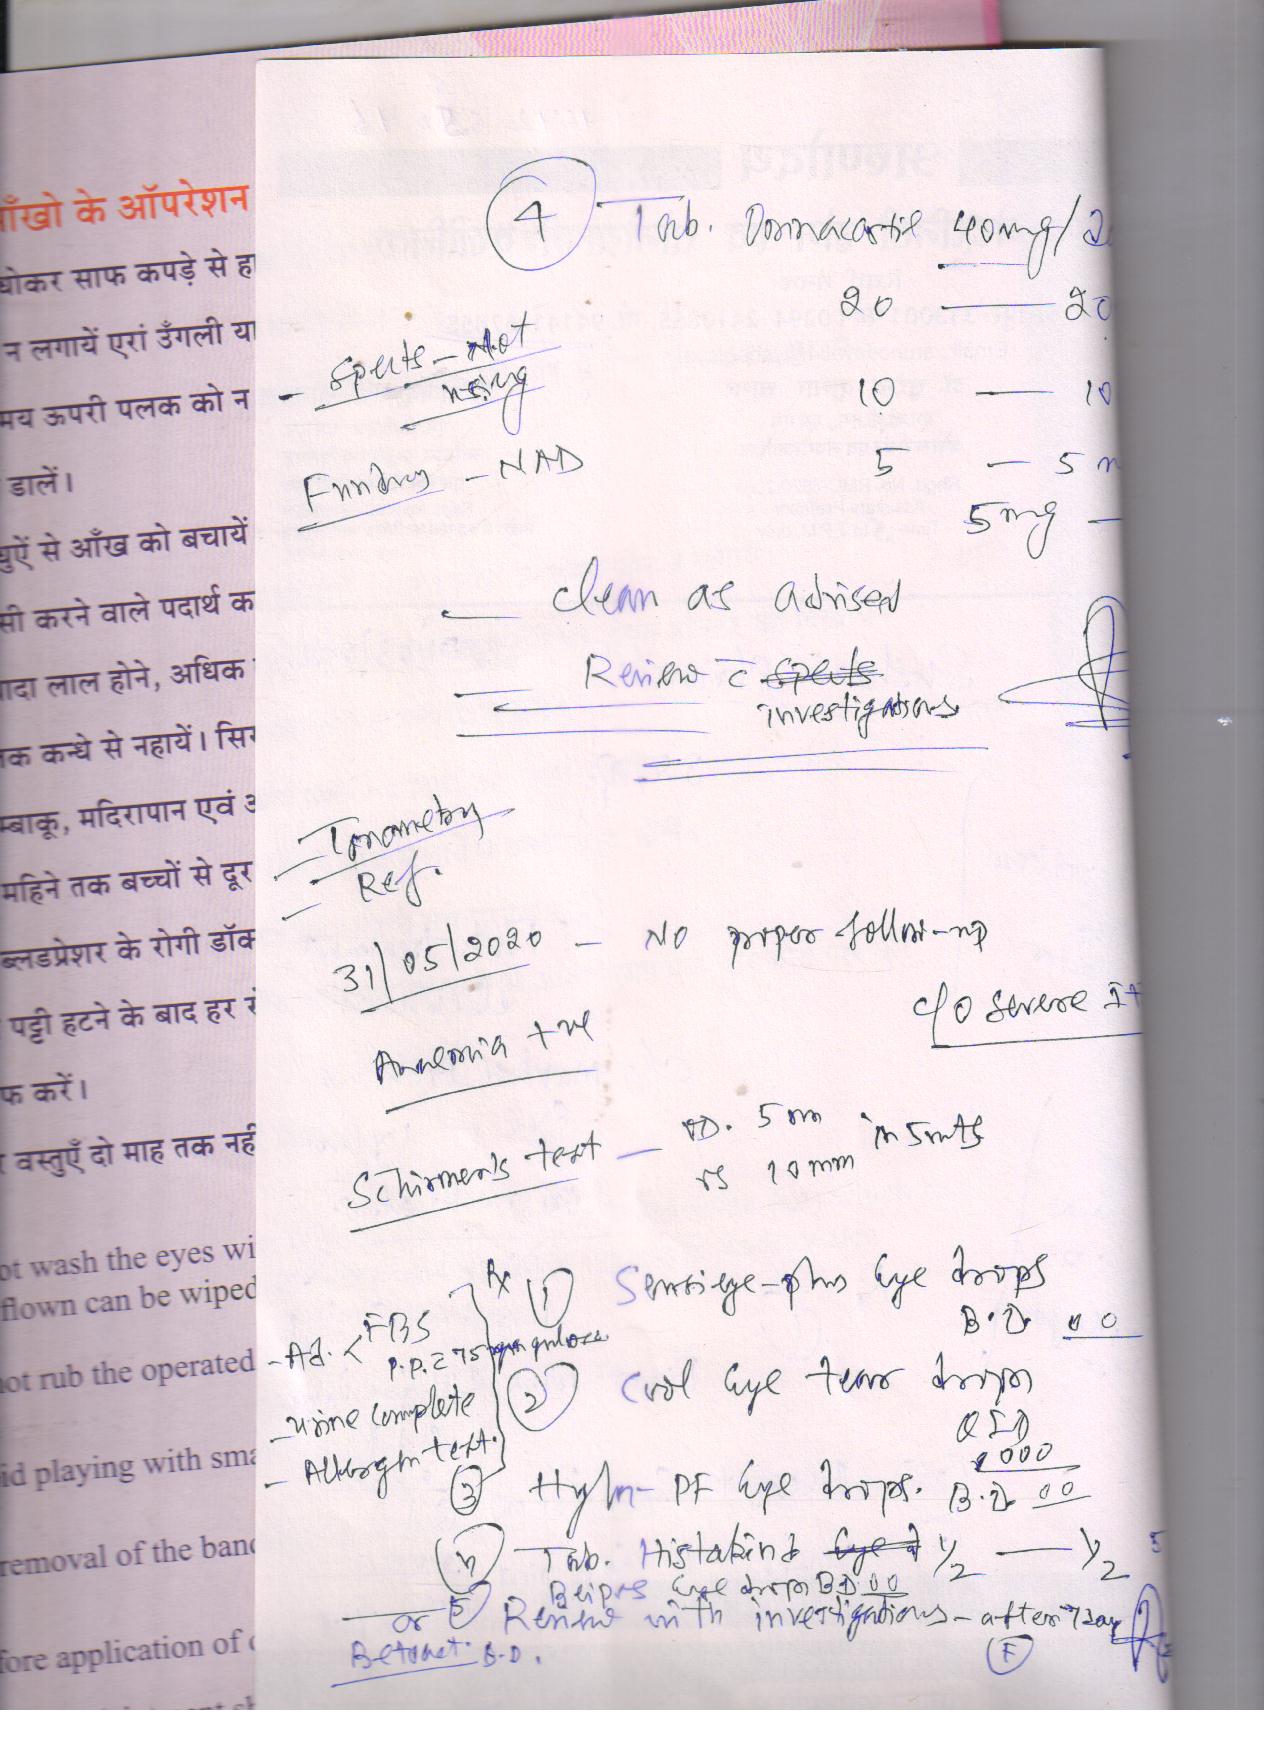 आँखो के ऑपरेशन
धोकर साफ कपड़े से
न लगायें एरां उँगली या
मय ऊपरी पलक को न
डालें।
धुऐं से आँख को बचायें
सी करने वाले पदार्थ
ज्यादा लाल होने, अधिक
तक कन्धे से नहायें।
म्बाकू, मदिरापान एवं
महिने तक बच्चों से दूर
ब्लडप्रेशर के रोगी
पट्टी हटने के बाद हर
फ करें।
वस्तुएँ दो माह तक नहीं
ot wash the eyes wi
flown can be wiped
not rub the operated
id playing with sma
removal of the band
fore application of
4 Tab. 40mg/2
20 — 20
- Spects - Not using
10 — 10
Fundus - NAD
5 — 5 m
5mg —
clean as advised
Review c̄ spects
investigations
Tonometry
Ref.
31/05/2020 - No proper follow-up
c/o severe It
Anaemia +ve
Schirmer's test — OD. 5 mm in 5 mts
OS 10 mm
Rx 1 Sensieye-plus Eye drops
B.D. 00
- Ad. < FBS
P.P. c̄ 75 gm glucose
2 Cool Eye tear drops
QID
0000
- Urine complete
- Allergin test.
3 Hylo-PF Eye drops. B.D. 00
4 Tab. ½ — ½
Eye drops B.D. 00
or 5 Review with investigations - after 7 day
B.D.
F